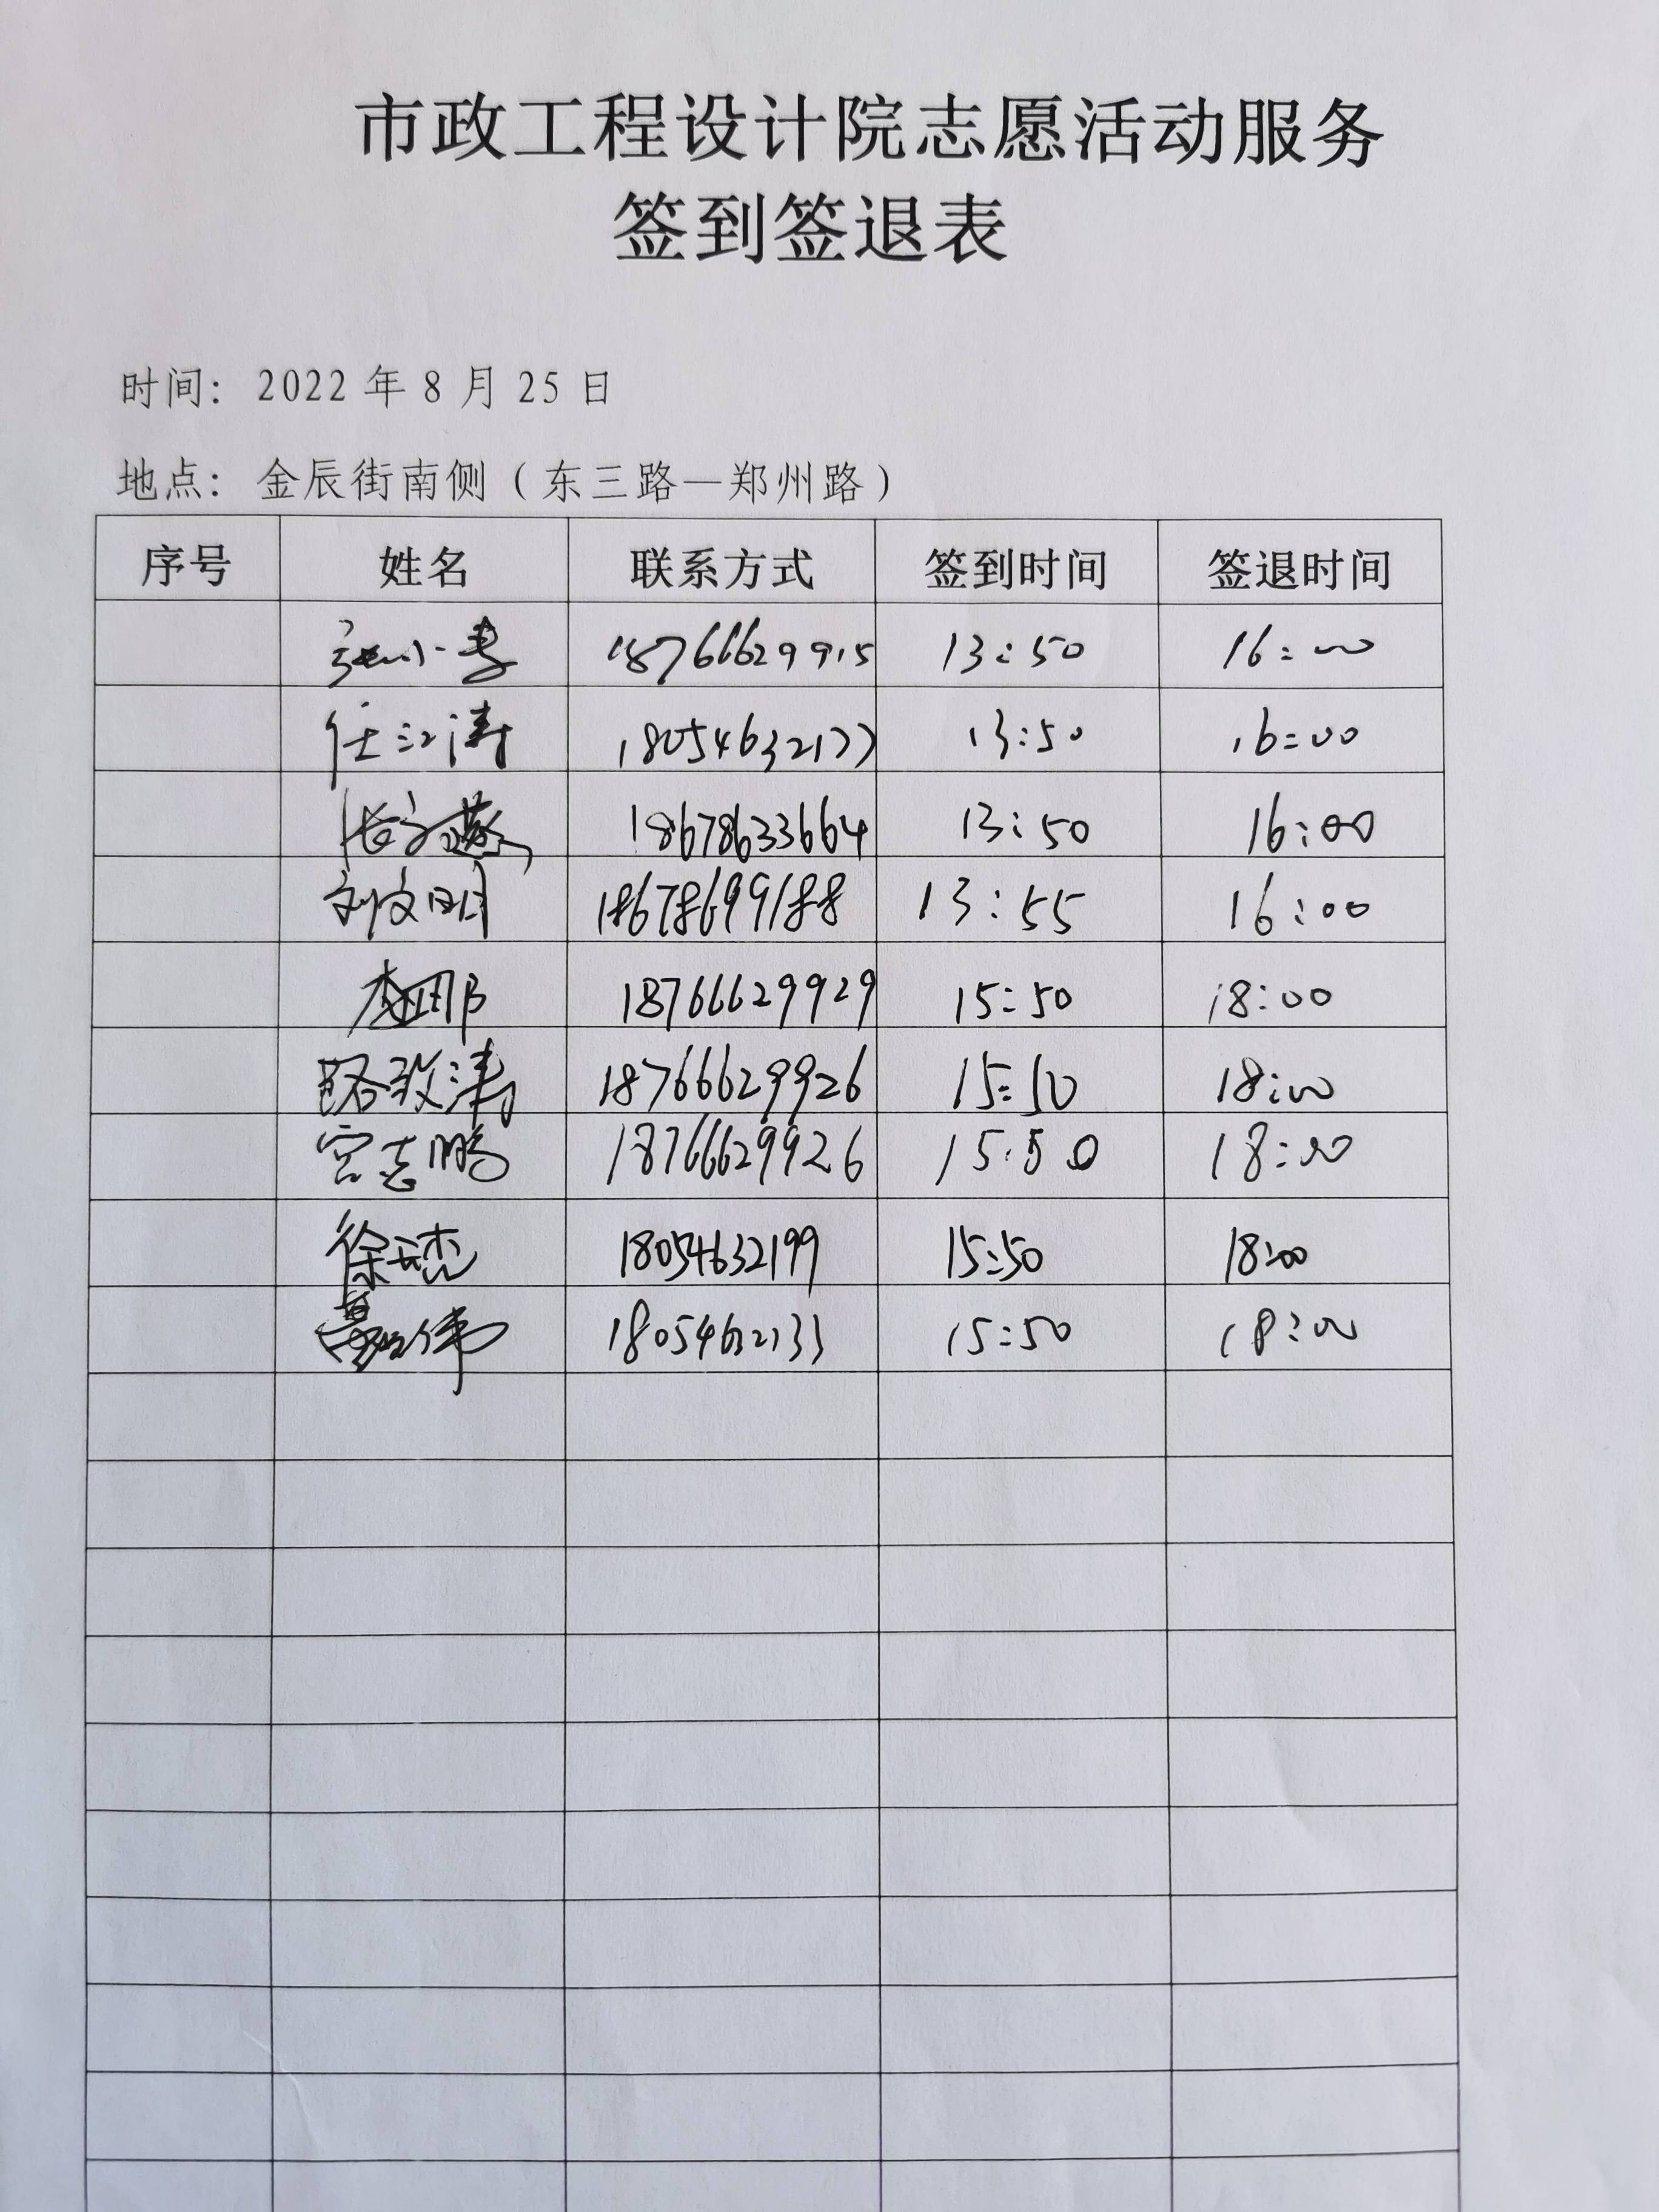 市政工程设计院志愿活动服务
签到签退表
时间：2022 年 8 月 25 日
地点：金辰街南侧（东三路—郑州路）
序号 姓名 联系方式 签到时间 签退时间
18766629915 13:50 16:00
任江涛 18054632177 13:50 16:00
18678633664 13:50 16:00
刘文明 18678699188 13:55 16:00
18766629929 15:50 18:00
路致涛 18766629926 15:50 18:00
宫志鹏 18766629926 15:50 18:00
徐云杰 18054632199 15:50 18:00
18054632133 15:50 18:00